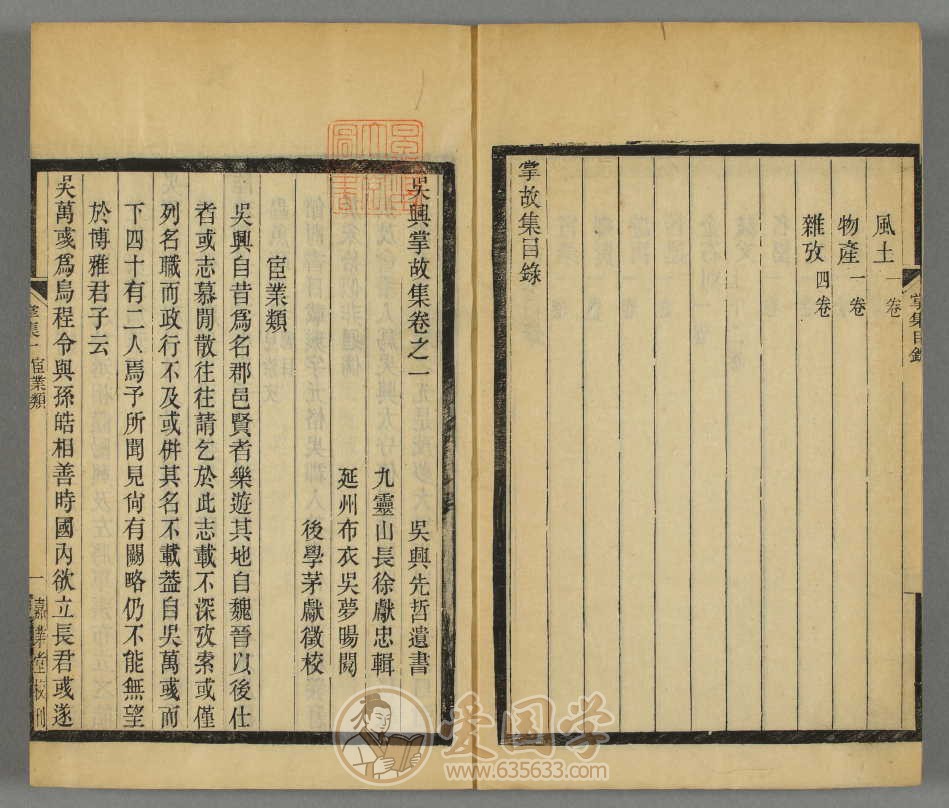 風土一卷
物產一卷
雜攷四卷
掌故集目錄
掌集目錄
吳興掌故集卷之一　吳興先哲遺書
九靈山長徐獻忠輯
延州布衣吳夢暘閱
後學茅獻徵校
宦業類
吳興自昔爲名郡邑賢者樂遊其地自魏晉以後仕
者或志慕閒散往往請乞於此志載不深攷索或僅
列名職而政行不及或併其名不載葢自吳萬彧而
下四十有二人焉予所聞見尙有闕略仍不能無望
於博雅君子云
吳萬彧爲烏程令與孫皓相善時國內欲立長君彧遂
掌集一 宦業類　一　嘉業堂校刊
爱国学
www.635633.com